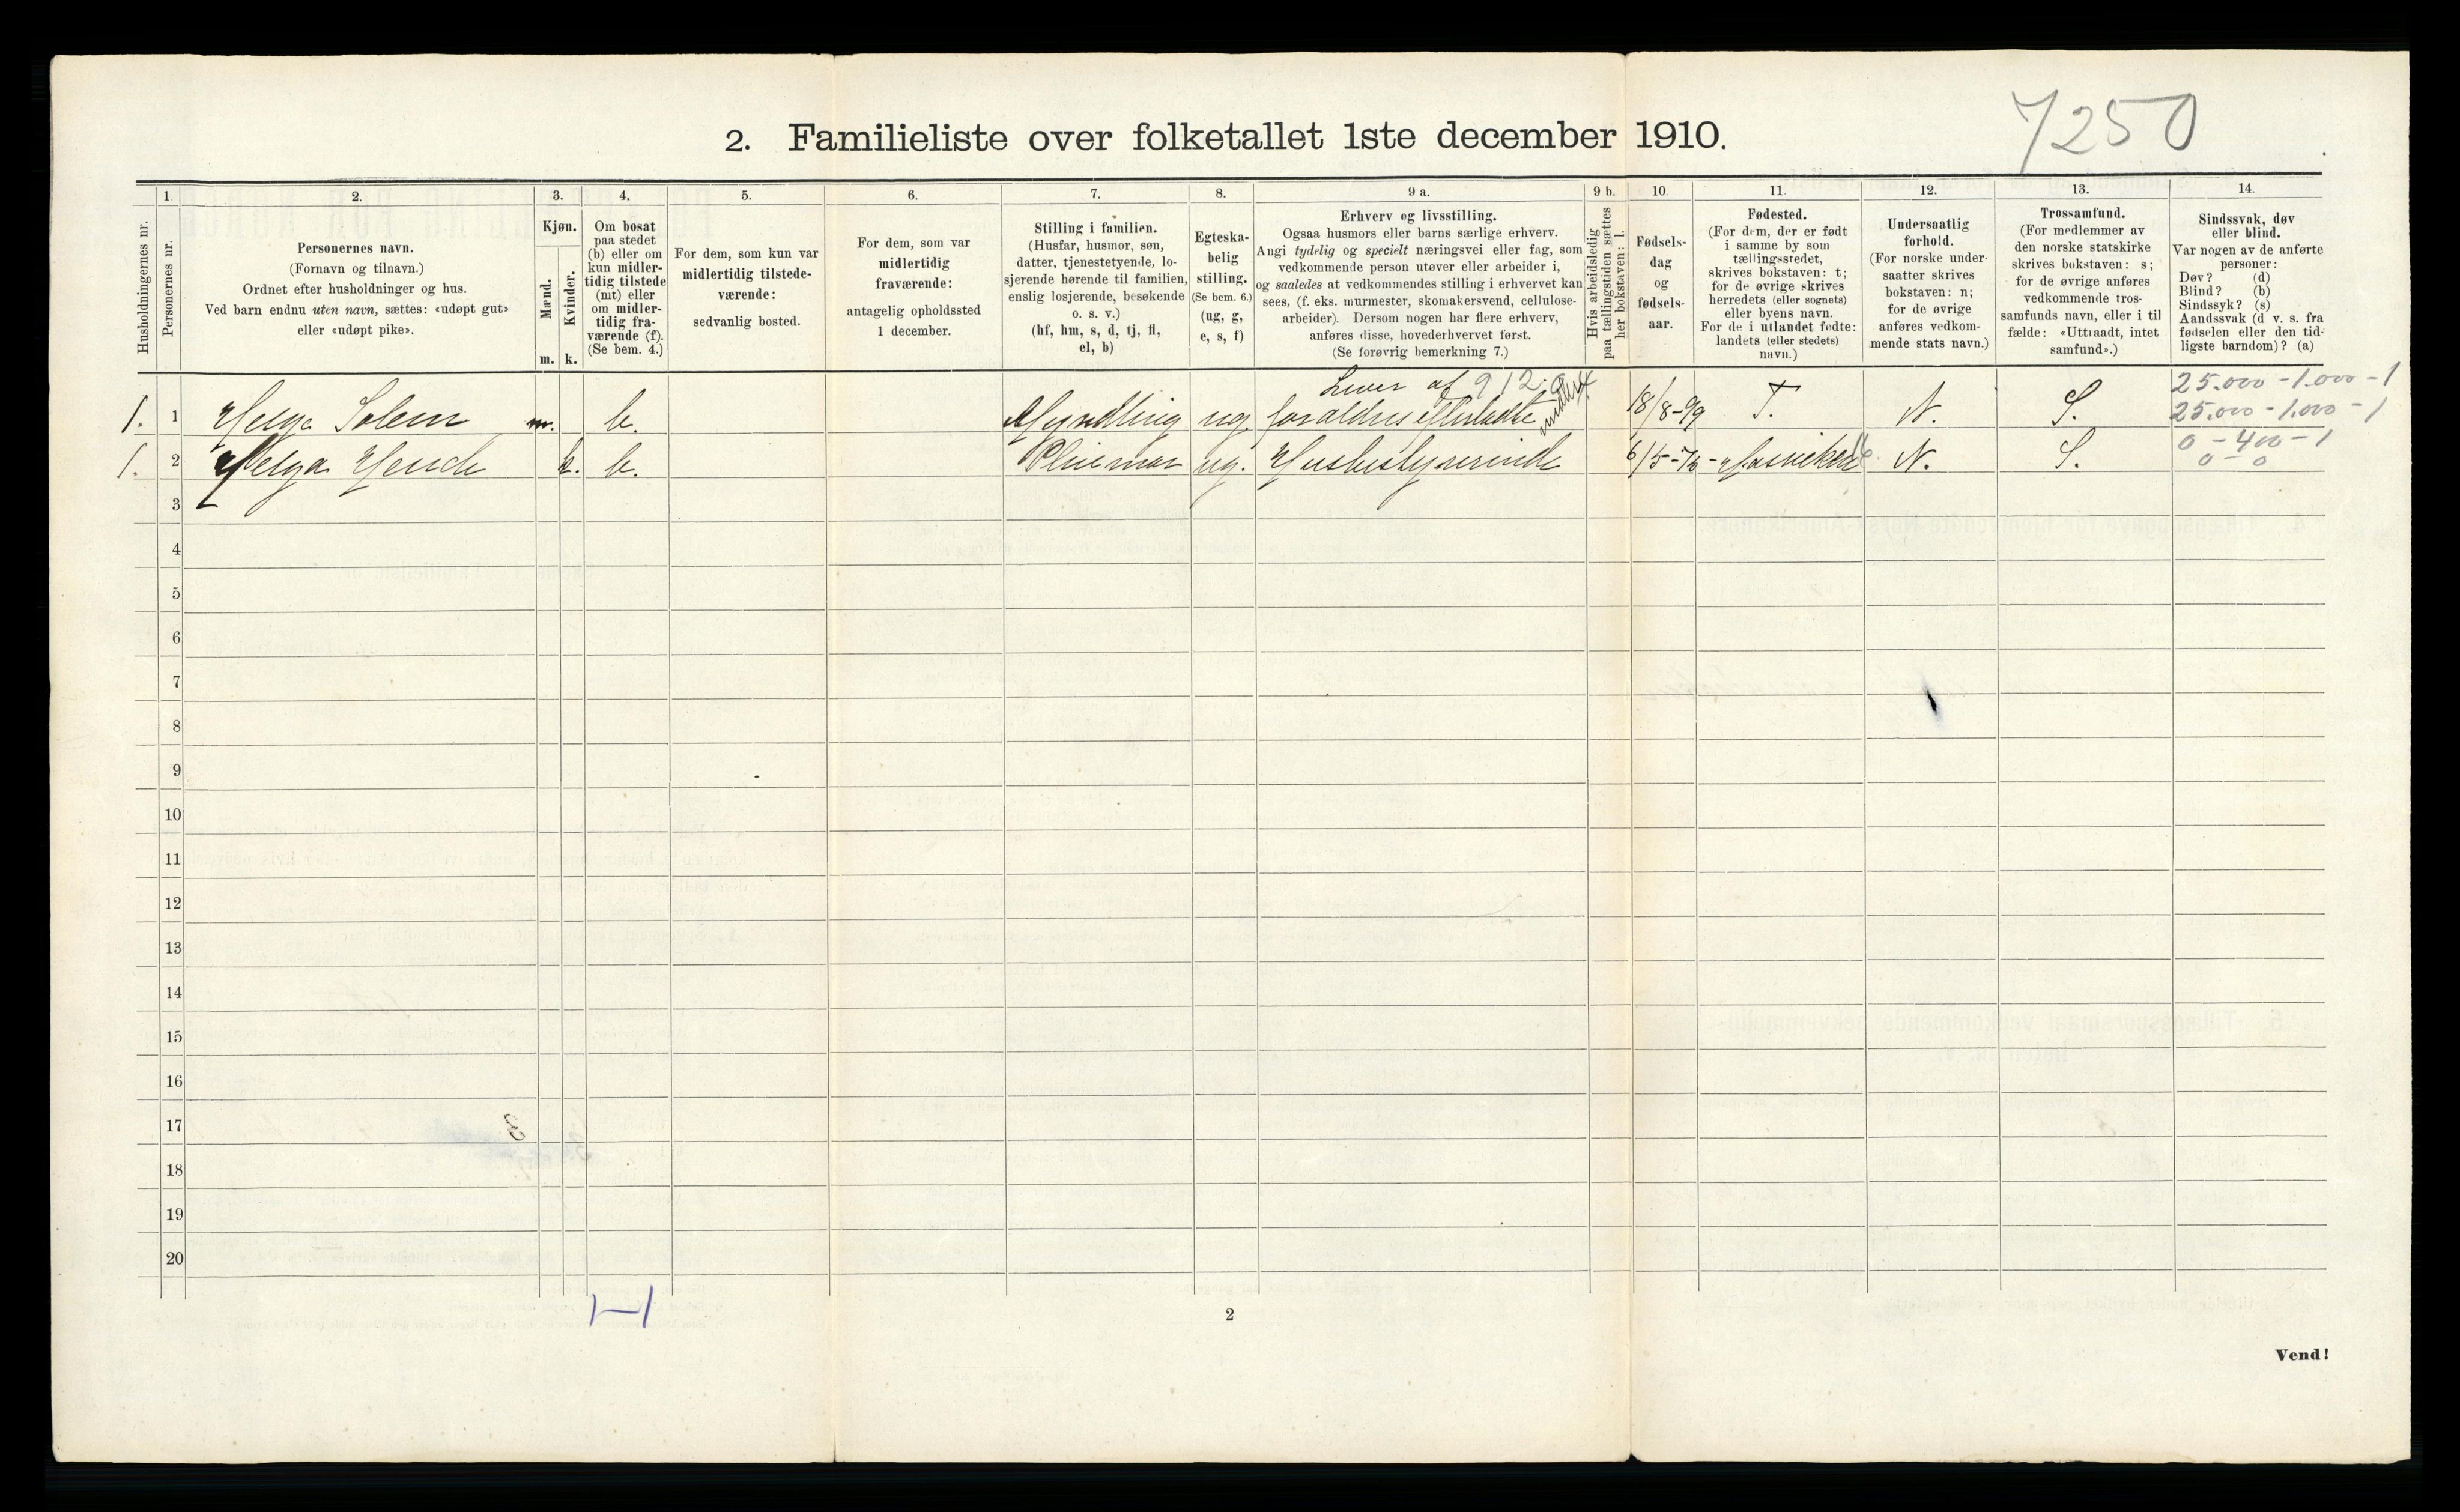 7250
2. Familieliste over folketallet 1ste december 1910.
Husholdningernes nr.
1.
Personernes nr.
2.
Personernes navn.
(Fornavn og tilnavn.)
Ordnet efter husholdninger og hus.
Ved barn endnu uten navn, sættes: «udøpt gut»
eller «udøpt pike».
3.
Kjøn.
Mænd.
m.
Kvinder.
k.
4.
Om bosat
paa stedet
(b) eller om
kun midler-
tidig tilstede
(mt) eller
om midler-
tidig fra-
værende (f).
(Se bem. 4.)
5.
For dem, som kun var
midlertidig tilstede-
værende:
sedvanlig bosted.
6.
For dem, som var
midlertidig
fraværende:
antagelig opholdssted
1 december.
7.
Stilling i familien.
(Husfar, husmor, søn,
datter, tjenestetyende, lo-
sjerende hørende til familien,
enslig losjerende, besøkende
o. s. v.)
(hf, hm, s, d, tj, fl,
el, b)
8.
Egteska-
belig
stilling.
(Se bem. 6.)
(ug, g,
e, s, f)
9 a.
Erhverv og livsstilling.
Ogsaa husmors eller barns særlige erhverv.
Angi tydelig og specielt næringsvei eller fag, som
vedkommende person utøver eller arbeider i,
og saaledes at vedkommendes stilling i erhvervet kan
sees, (f. eks. murmester, skomakersvend, cellulose-
arbeider). Dersom nogen har flere erhverv,
anføres disse, hovederhvervet først.
(Se forøvrig bemerkning 7.)
9 b.
Hvis arbeidsledig
paa tællingstiden sættes
her bokstaven: l.
10.
Fødsels-
dag
og
fødsels-
aar.
11.
Fødested.
(For dem, der er født
i samme by som
tællingsstedet,
skrives bokstaven: t;
for de øvrige skrives
herredets (eller sognets)
eller byens navn.
For de i utlandet fødte:
landets (eller stedets)
navn.)
12.
Undersaatlig
forhold.
(For norske under-
saatter skrives
bokstaven: n;
for de øvrige
anføres vedkom-
mende stats navn.)
13.
Trossamfund.
(For medlemmer av
den norske statskirke
skrives bokstaven: s;
for de øvrige anføres
vedkommende tros-
samfunds navn, eller i til
fælde: «Uttraadt, intet
samfund».)
14.
Sindssvak, døv
eller blind.
Var nogen av de anførte
personer:
Døv? (d)
Blind? (b)
Sindssyk? (s)
Aandssvak (d v. s. fra
fødselen eller den tid-
ligste barndom)? (a)
25.000 - 1.000 - 1
Lever af 912.
1. 1 Helge Solem m. b. Myndling ug. forældres efterladte midler 18/8-99 T. N. S. 25.000 - 1.000 - 1
0 - 400 - 1
1. 2 Helga k. b. Pleiemor ug. Husbestyrerinde N. S. 0 - 0
3
4
5
6
7
8
9
10
11
12
13
14
15
16
17
18
19
20
1-1
2
Vend!